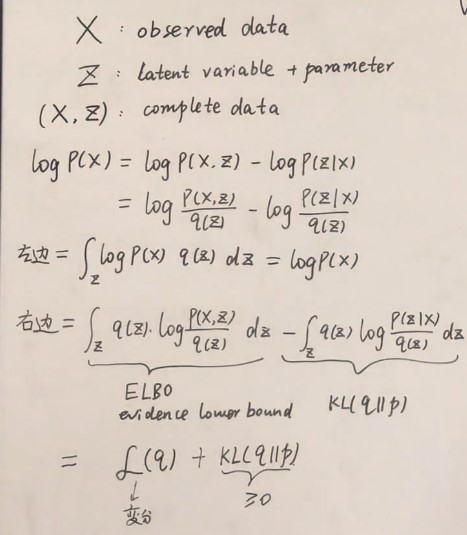 X : observed data
Z : latent variable + parameter
(X, Z) : complete data
log P(X) = log P(X, Z) - log P(Z|X)
= log P(X,Z)/q(Z) - log P(Z|X)/q(Z)
左边 = ∫_Z log P(X) q(Z) dZ = log P(X)
右边 = ∫_Z q(Z). log P(X,Z)/q(Z) dZ - ∫_Z q(Z) log P(Z|X)/q(Z) dZ
ELBO
evidence lower bound KL(q||p)
= L(q) + KL(q||p)
↓ ≥0
变分